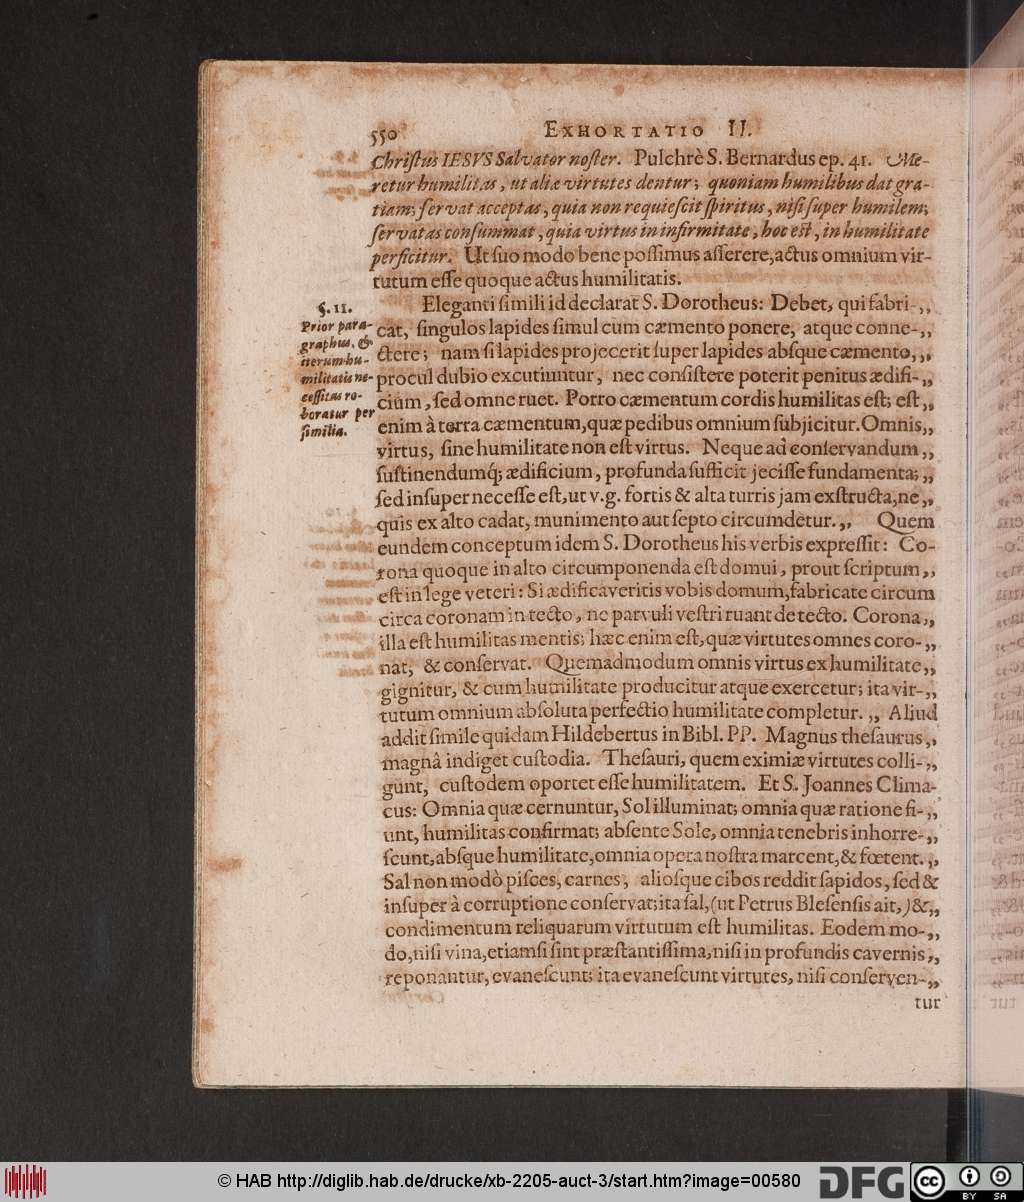 550 EXHORTATIO II.
Chriſtus IESVS Salvator noſter. Pulchrè S. Bernardus ep. 41. Me-
retur humilitas, ut aliæ virtutes dentur; quoniam humilibus dat gra-
tiam; ſervat acceptas, quia non requieſcit ſpiritus, niſi ſuper humilem;
ſervatas conſummat, quia virtus in infirmitate, hoc eſt, in humilitate
perficitur. Ut ſuo modo bene poſſimus aſſerere, actus omnium vir-
tutum eſſe quoque actus humilitatis.
§. II.
Prior para-
graphus, &
iterum hu-
militatis ne-
ceſſitas ro-
boratur per
ſimilia.
Eleganti ſimili id declarat S. Dorotheus: Debet, qui fabri-„
cat, ſingulos lapides ſimul cum cæmento ponere, atque conne-„
ctere; nam ſi lapides projecerit ſuper lapides abſque cæmento,„
procul dubio excutiuntur, nec conſiſtere poterit penitus ædifi-„
cium, ſed omne ruet. Porro cæmentum cordis humilitas eſt; eſt„
enim à terra cæmentum, quæ pedibus omnium ſubjicitur. Omnis„
virtus, ſine humilitate non eſt virtus. Neque ad conſervandum„
ſuſtinendumq́; ædificium, profunda ſufficit jeciſſe fundamenta;„
ſed inſuper neceſſe eſt, ut v.g. fortis & alta turris jam exſtructa, ne„
quis ex alto cadat, munimento aut ſepto circumdetur.„ Quem
eundem conceptum idem S. Dorotheus his verbis expreſſit: Co-
rona quoque in alto circumponenda eſt domui, prout ſcriptum„
eſt in lege veteri: Si ædificaveritis vobis domum, fabricate circum
circa coronam in tecto, ne parvuli veſtri ruant de tecto. Corona„
illa eſt humilitas mentis; hæc enim eſt, quæ virtutes omnes coro-„
nat, & conſervat. Quemadmodum omnis virtus ex humilitate„
gignitur, & cum humilitate producitur atque exercetur; ita vir-„
tutum omnium abſoluta perfectio humilitate completur.„ Aliud
addit ſimile quidam Hildebertus in Bibl. PP. Magnus theſaurus„
magnâ indiget cuſtodia. Theſauri, quem eximiæ virtutes colli-„
gunt, cuſtodem oportet eſſe humilitatem. Et S. Joannes Clima-
cus: Omnia quæ cernuntur, Sol illuminat; omnia quæ ratione fi-„
unt, humilitas confirmat; abſente Sole, omnia tenebris inhorre-„
ſcunt, abſque humilitate, omnia opera noſtra marcent, & fœtent.„
Sal non modò piſces, carnes, aliosque cibos reddit ſapidos, ſed &
inſuper à corruptione conſervat; ita ſal, (ut Petrus Bleſenſis ait,) &„
condimentum reliquarum virtutum eſt humilitas. Eodem mo-„
do, niſi vina, etiamſi ſint præſtantiſſima, niſi in profundis cavernis„
reponantur, evaneſcunt; ita evaneſcunt virtutes, niſi conſerven-„
tur
© HAB http://diglib.hab.de/drucke/xb-2205-auct-3/start.htm?image=00580
DFG
cc BY SA